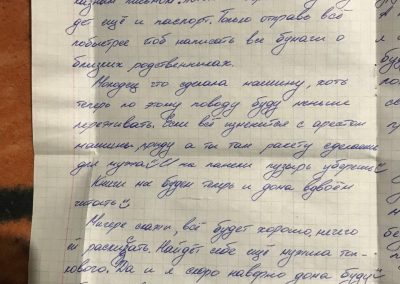 дет ещё и паспорт. Только отправь всё
побыстрее чтоб написать все бумаги о
близких родственниках.
Молодец что сделала машину, хоть
теперь по этому поводу буду меньше
переживать. Если всё с арестом
машины приду а ты там ракету сделаешь
для мужа и на панели пузырь уберешь
Книги их будем теперь и дома вдвоём
читать
скажи, всё будет хорошо, нечего
ей . Найдёт себе ещё мужика
Да и я скоро наверно дома буду